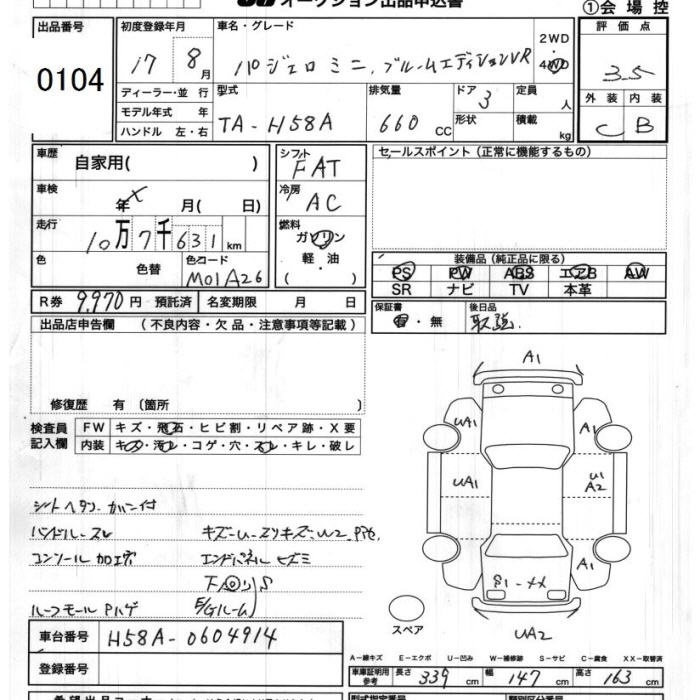 オークション出品申込書 ①会場控
出品番号 初度登録年月 車名・グレード 2WD 評価点
0104 17 8月 パジェロミニ ブルームエディションVR 4WD 3.5
ディーラー・並行 型式 排気量 ドア 3 定員 人 外装 内装
モデル年式 年 TA-H58A 660cc 形状 積載 kg C B
ハンドル 左・右
車歴 自家用( ) シフト FAT セールスポイント (正常に機能するもの)
車検 年 X 月( 日) 冷房 AC
走行 10万7千631km 燃料 ガソリン
色 色替 色コード M01A26 軽・油 ( ) 装備品 (純正品に限る)
PS PW ABS エアB AW
SR ナビ TV 本革
R券 9,970円 預託済 名変期限 月 日
保証書 有・無 後日品 取説
出品店申告欄 (不良内容・欠品・注意事項等記載)
修復歴 有 (箇所 )
検査員記入欄 FW キズ・飛石・ヒビ割・リペア跡・X要
内装 キズ・汚レ・コゲ・穴・スレ・キレ・破レ
A1
UA1 A1
UA1 U1 A2
A1
UA2
シートヘタリ カバー付
ハンドル-スレ
コンソール加工
エンドパネルヒズミ
下回りS
ルーフモールPハゲ E/Gルーム
スペア
車台番号 H58A-0604914
登録番号
A-線キズ E-エクボ U-凹み W-補修跡 S-サビ C-腐食 XX-取替済
車庫証明用参考 長さ 339cm 幅 147cm 高さ 163cm